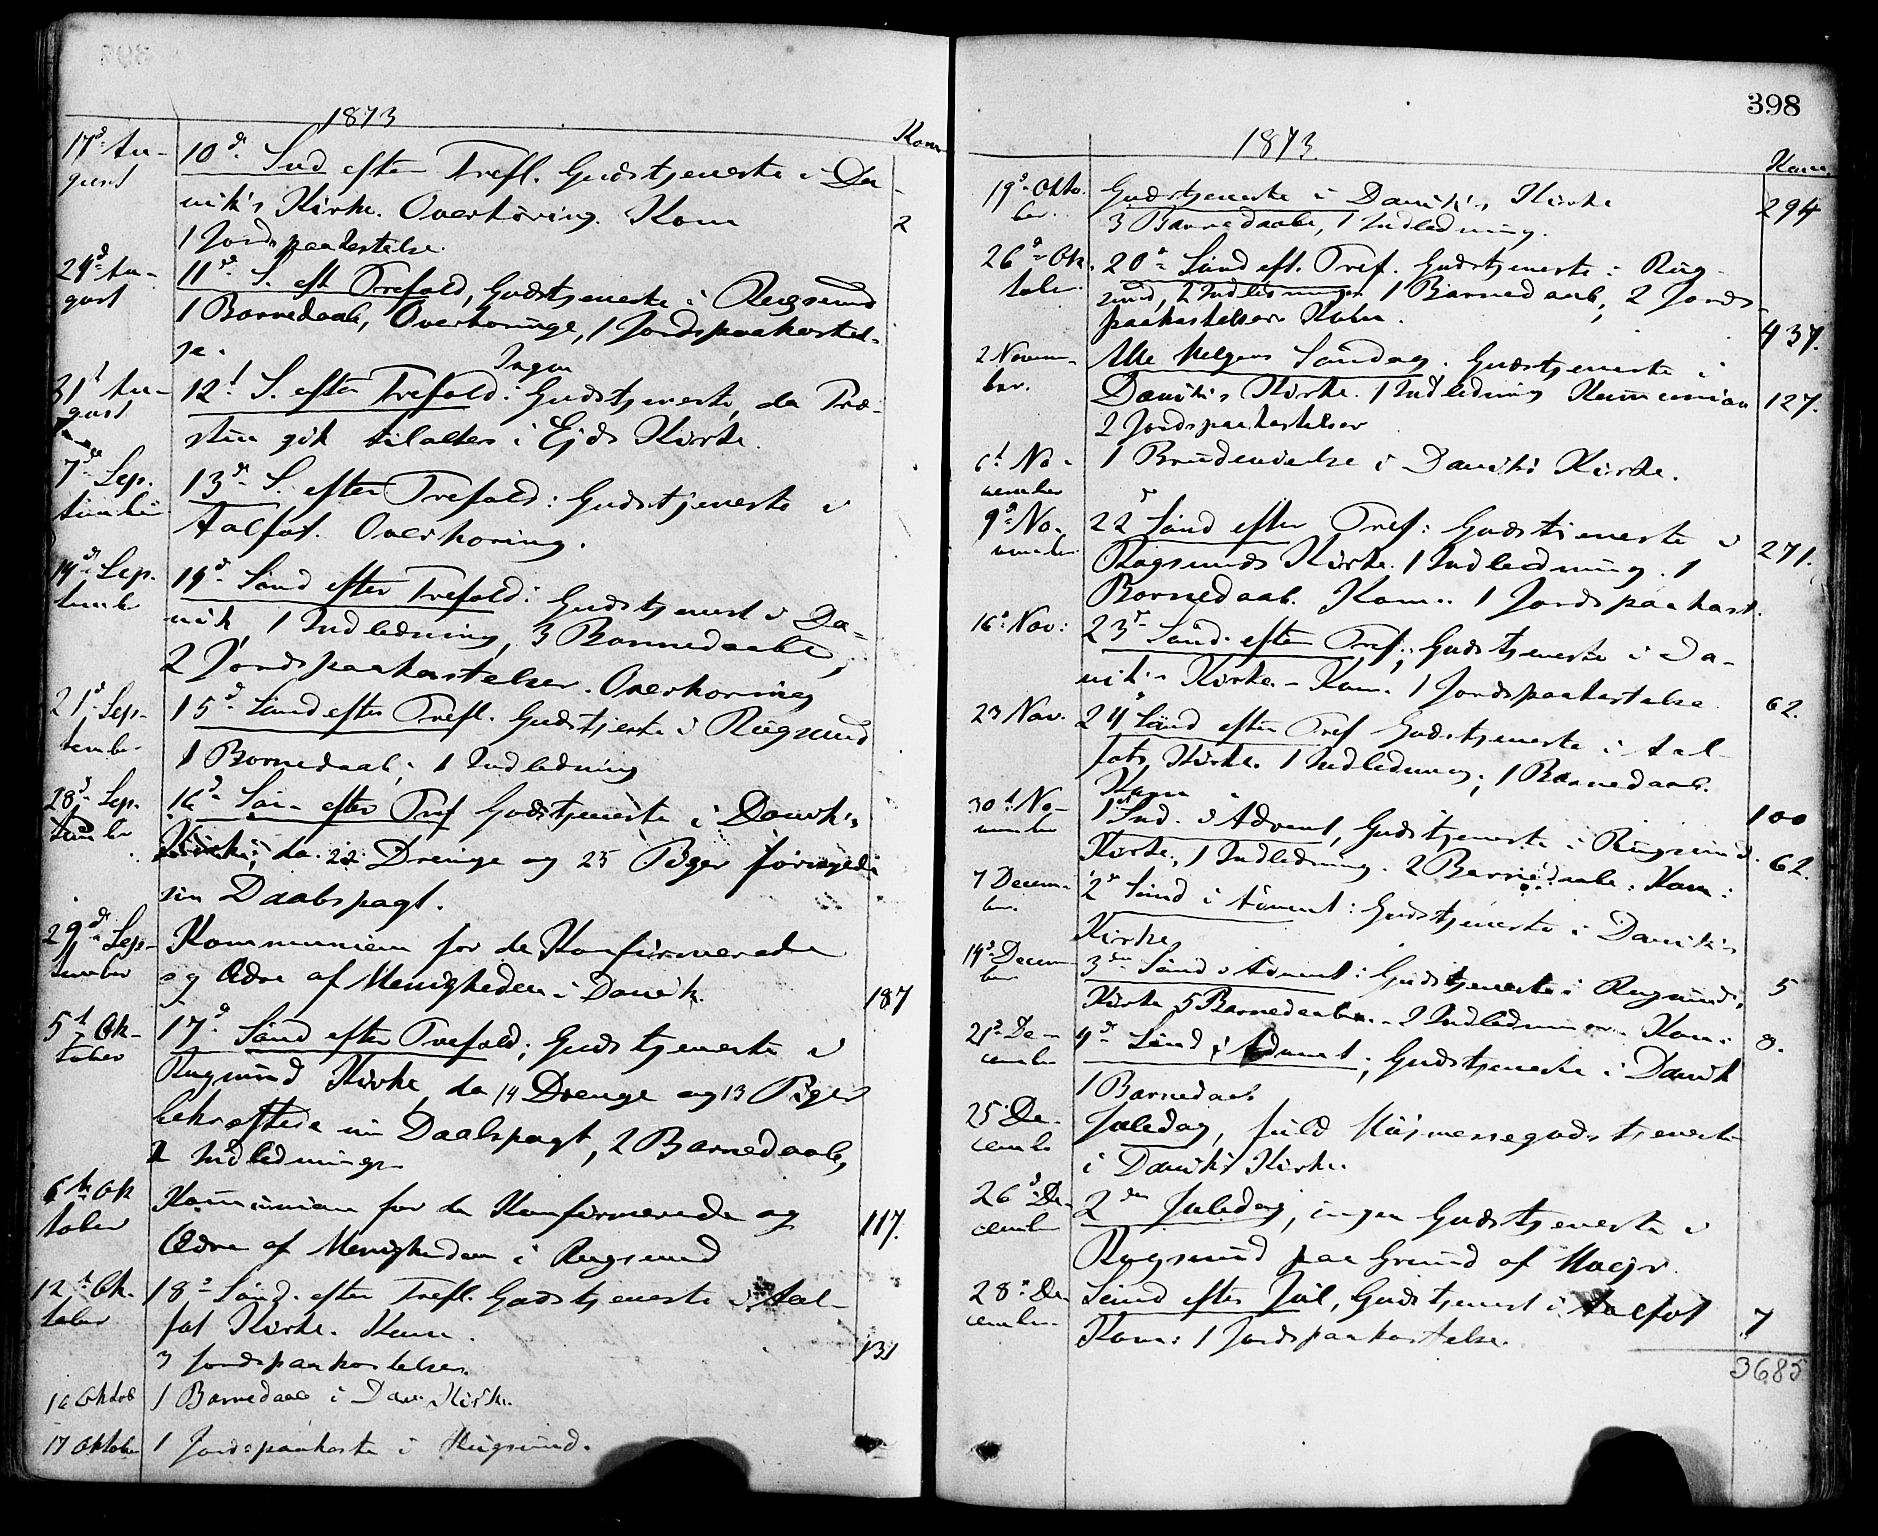 1873
Kom
17d Au-
gust
10d Snd efter Trefl. Gudstjeneste i Da
vik's Kirke. Overhöring. Kom
2
1 Jordspaakastelse.
24d Au-
gust
11d S. eft Trefold, Gudstjeneste i Rugsund
1 Barnedaab, Overhöringe, 1 Jordspaakastel-
se.
Ingen
31t Au-
gust
12t S. efter Trefold: Gudstjeneste, da Præ-
sten gik tilalters i Ejds Kirke
7de Sep-
tember
13d S. efter Trefold: Gudstjeneste i
Aalfot. Overhoring.
14d Sep-
tembr
14d Sünd efter Trefold: Gudstjenest i Da-
vik 1 Indledning, 3 Barnedaabe,
2 Jordspaakastelser. Overhoring
21d Sep-
tembr
15d Sünd efter Trefl. Gudstjenste i Rügsund
1 Barnedaab, 1 Indledning
28d Sep-
tembr
16d Sön efter Tref Gudstjeneste i Davik's
Kirke, da 22 Drenge og 25 Piger fornyede
sin Daabspagt.
29d Sep-
tember
Kommunion for de Konfirmerede
og Ædre af Menigheden i Davik.
187
5t Ok-
tober
17d Sünd efter Trefold; Gudstjeneste i
Rugsund Kirke, da 14 Drenge og 13 Piger
bekræftede sin Daabspagt, 2 Barnedaab,
2 Indledninger
6te Ok
tober
Kommunion for de Konfirmerede og
Ædre af Menigheden i Rugsund
117.
12t Ok-
tober
18d Sönd. efter Trefl. Gudstjeneste i Aal-
fot Kirke. Kom.
131
3 Jordspaakastelser
16 Oktob
1 Barnedaab i Dav. Kirke.
17 Oktober
1 Jordspaakaste i Rügsund.
398
1873.
Kom.
19d Okto.
ber.
Gudstjeneste i Davik's Kirke
294
3 Barnedaabe, 1 Indledning.
26d Ok.
tober
20d Sünd eft. Tref. Gudstjeneste i Rüg-
sund, 2 Indledninger 1 Barnedaab, 2 Jords-
paakastelser Kom.
437.
2 Novem-
ber.
Alle Helgens Söndag. Gudstjeneste i
Davik's Kirke. 1 Indledning Kommunion
127.
2 Jordspaakastelser
6t No-
vember
1 Brudevielse i Daviks Kirke.
9d No-
vember
22d Sönd efter Tref: Gudstjeneste i
271.
Rugsunds Kirke. 1 Indledning. 1
Barnedaab. Kom.. 1 Jordspaakast.
16d Nov:
23d Sönd. efter Tref.; Gudstjeneste i Da-
vik's Kirke. - Kom. 1 Jordspaakastelse.
62.
23 Nov.
24d Sünd efter Tref Gudstjeneste i Aal-
fots Kirke. 1 Indledning; 1 Barnedaab.
Kom
100
30t No-
vember
1st Snd. i Advent, Gudstjeneste i Rügsund.
Kirke, 1 Indledning. 2 Barnedaabe. Kom:
62.
7 Decem-
ber.
2d Sünd i Advent: Gudstjeneste i Davik's
Kirke
14d Decem
ber
3den Sünd i Advent: Gudstjeneste i Rugsund's
5
Kirke 5 Barnedaabe. - 2 Indledninger. Kom:
8.
21d De-
cembr
4d Sünd i Advent; Gudstjeneste i Davik
1 Barnedaab
25 De-
cembr
Juledag, fuld Höjmessegudstjeneste
i Daviks Kirke.
26d De-
cembr
2den Juledag, ingen Gudstjeneste i
Rugsund paa Grund af Vejr.
28d De
cember
Sönd efter Jül, Gudstjenest i Aalfot
7
Kom: 1 Jordspaakastelse.
3685